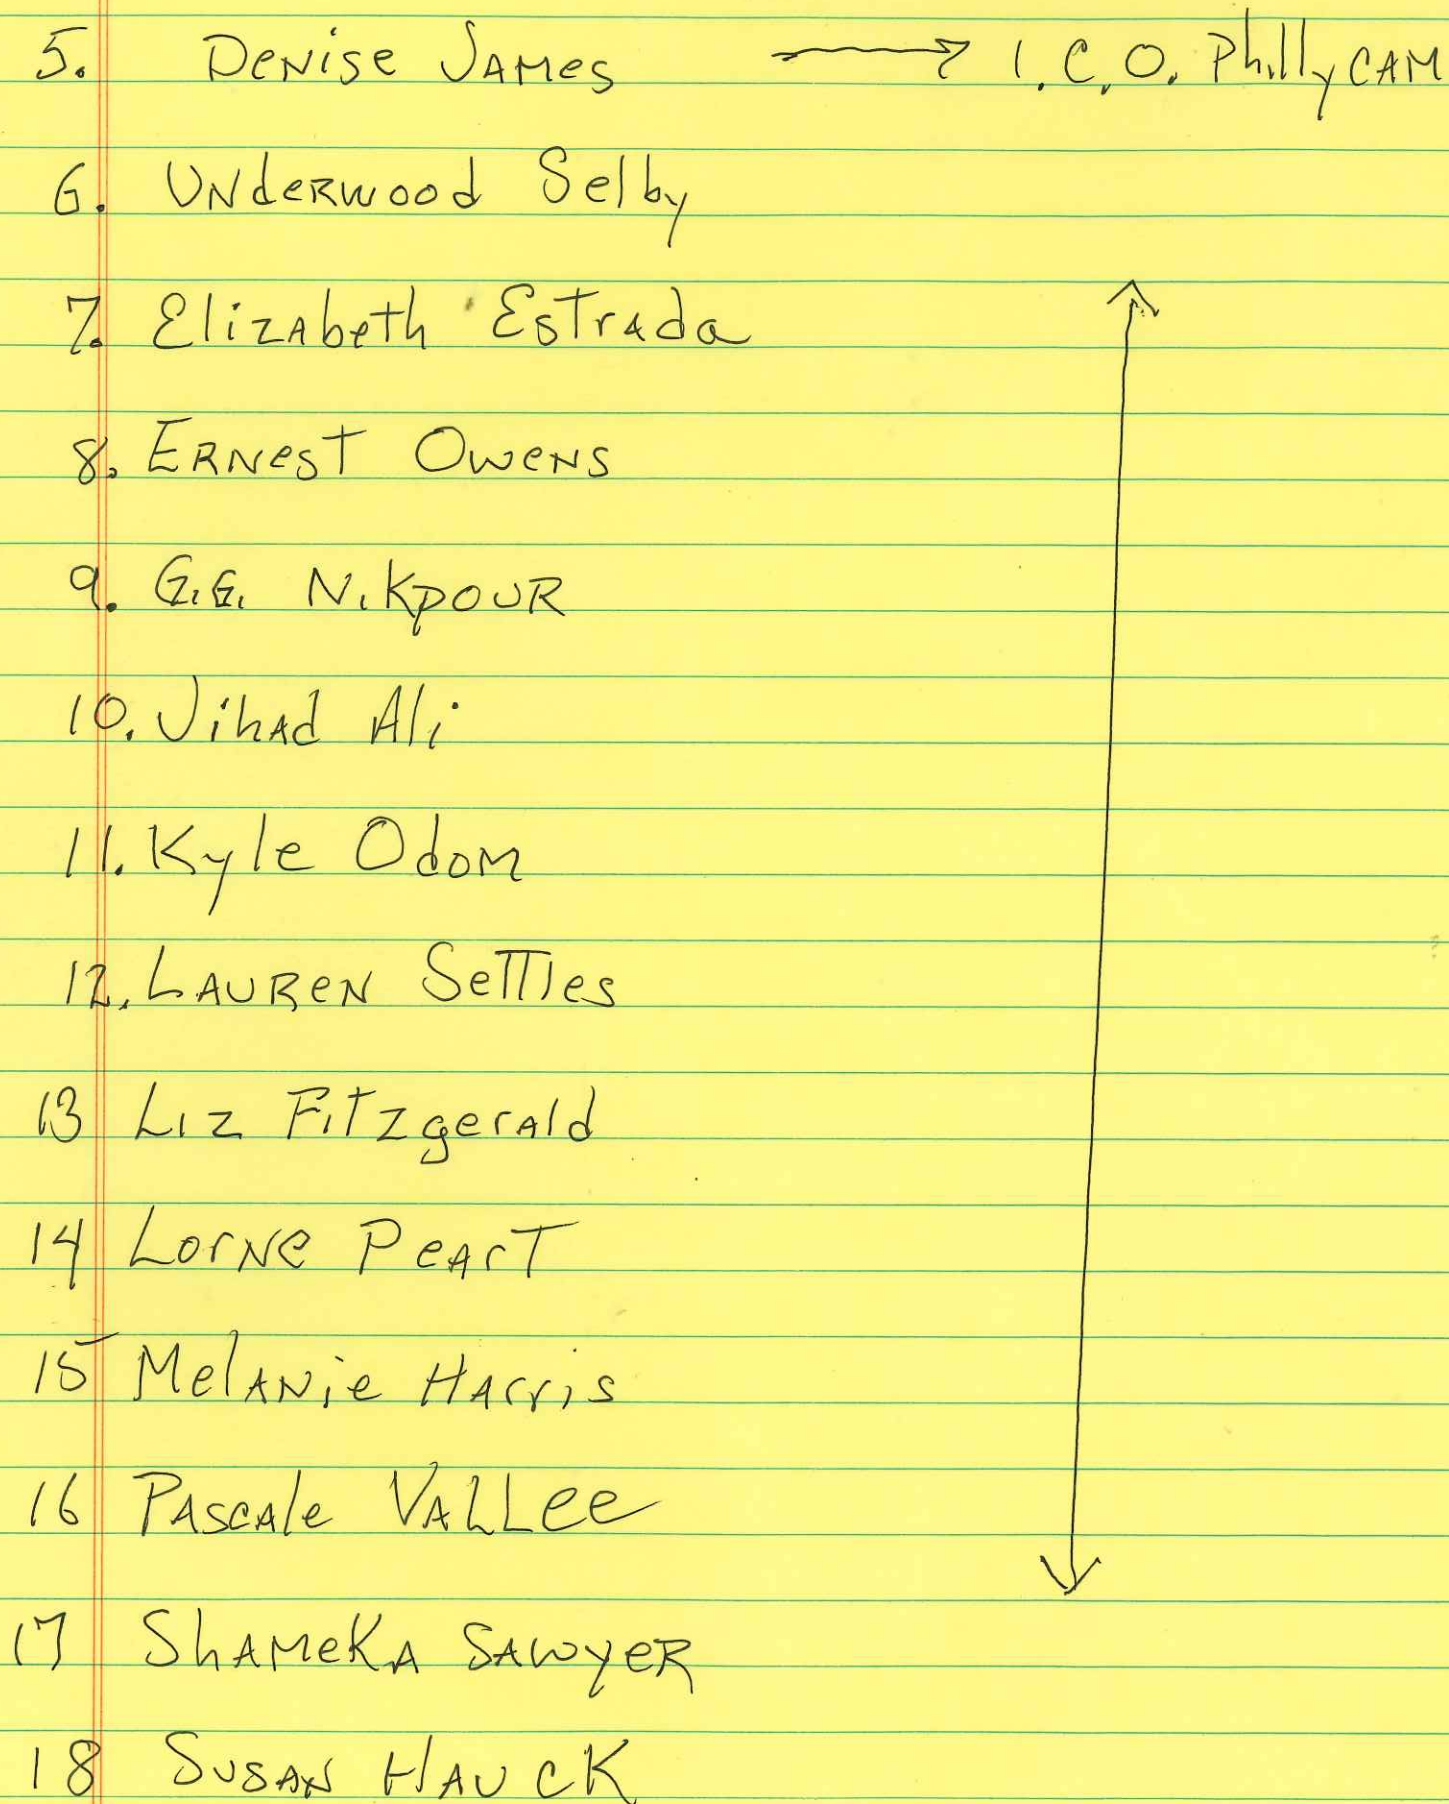 5. Denise James → I.C.O. PhillyCAM
6. Underwood Selby
7. Elizabeth Estrada
8. Ernest Owens
9. G.G. Nikpour
10. Jihad Ali
11. Kyle Odom
12. Lauren Settles
13 Liz Fitzgerald
14 Lorne Peart
15 Melanie Harris
16 Pascale Vallee
17 Shameka Sawyer
18 Susan Hauck